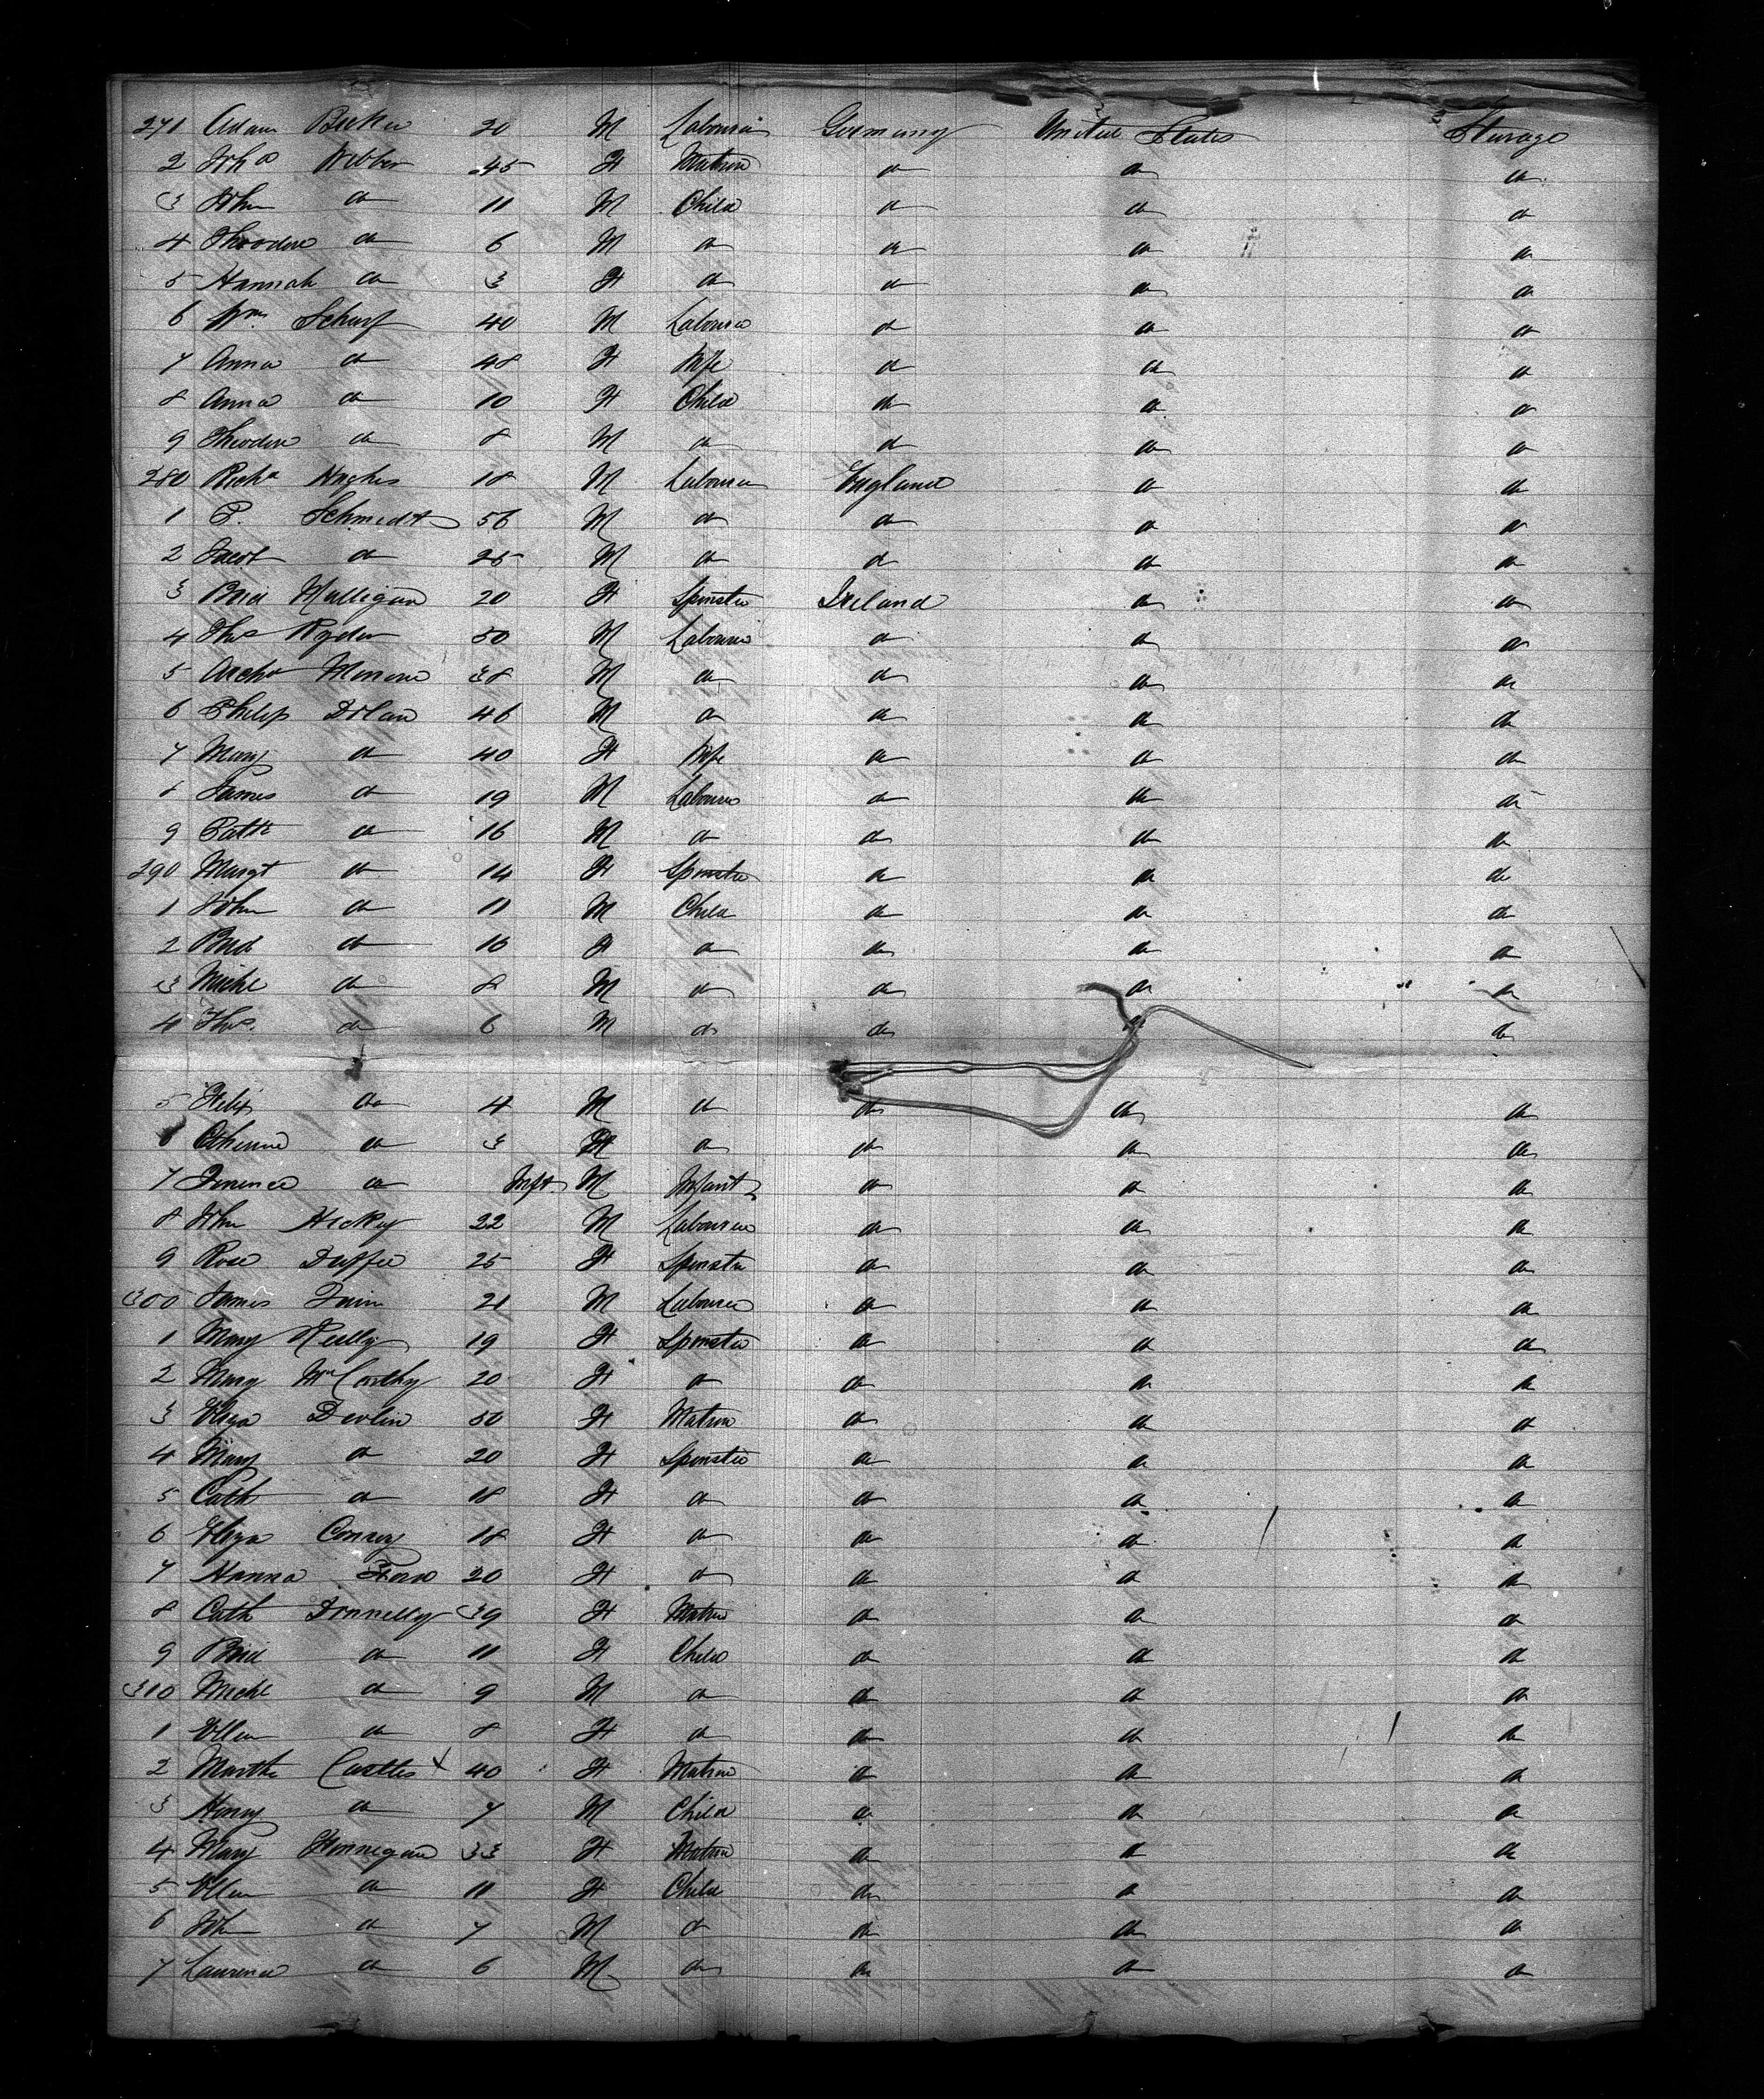 271 Adam Becker 20 M Labourer Germany United States Steerage
2 Joh<sup>a</sup> Webber 45 F Matron do do do
3 John do 11 M Child do do do
4 Theodore do 6 M do do do do
5 Hannah do 3 F do do do do
6 Wm Scharf 40 M Labourer do do do
7 Anna do 48 F Wife do do do
8 Anna do 10 F Child do do do
9 Theodore do 8 M do do do do
280 Richd Hughes 18 M Labourer England do do
1 P. Schmidt 56 M do do do do
2 Jacob do 25 M do do do do
3 Brid Mulligan 20 F Spinster Ireland do do
4 Thos Ryder 50 M Labourer do do do
5 Archd 38 M do do do do
6 Philip Dolan 46 M do do do do
7 Mary do 40 F Wife do do do
8 James do 19 M Labourer do do do
9 Patk do 16 M do do do do
290 Margt do 14 F Spinster do do do
1 John do 11 M Child do do do
2 Brid do 10 F do do do do
3 Michl do 8 M do do do do
4 Thos. do 6 M do do do do
5 Felix do 4 M do do do do
6 Catherine do 3 F do do do do
7 Terence do Inft. M Infant do do do
8 John Hickey 22 M Labourer do do do
9 Rose Duffee 25 F Spinster do do do
300 James 21 M Labourer do do do
1 Mary Reilly 19 F Spinster do do do
2 Mary McCarthy 20 F do do do do
3 Eliza Devlin 50 F Matron do do do
4 Mary do 20 F Spinster do do do
5 Cath do 18 F do do do do
6 Eliza Conroy 18 F do do do do
7 Hanna 20 F do do do do
8 Cath Donnelly 39 F Matron do do do
9 Brid do 11 F Child do do do
310 Michl do 9 M do do do do
1 Ellen do 8 F do do do do
2 Martha Castles x 40 F Matron do do do
3 Henry do 7 M Child do do do
4 Mary Finnegan 33 F Matron do do do
5 Ellen do 11 F Child do do do
6 John do 7 M do do do do
7 Laurence do 6 M do do do do